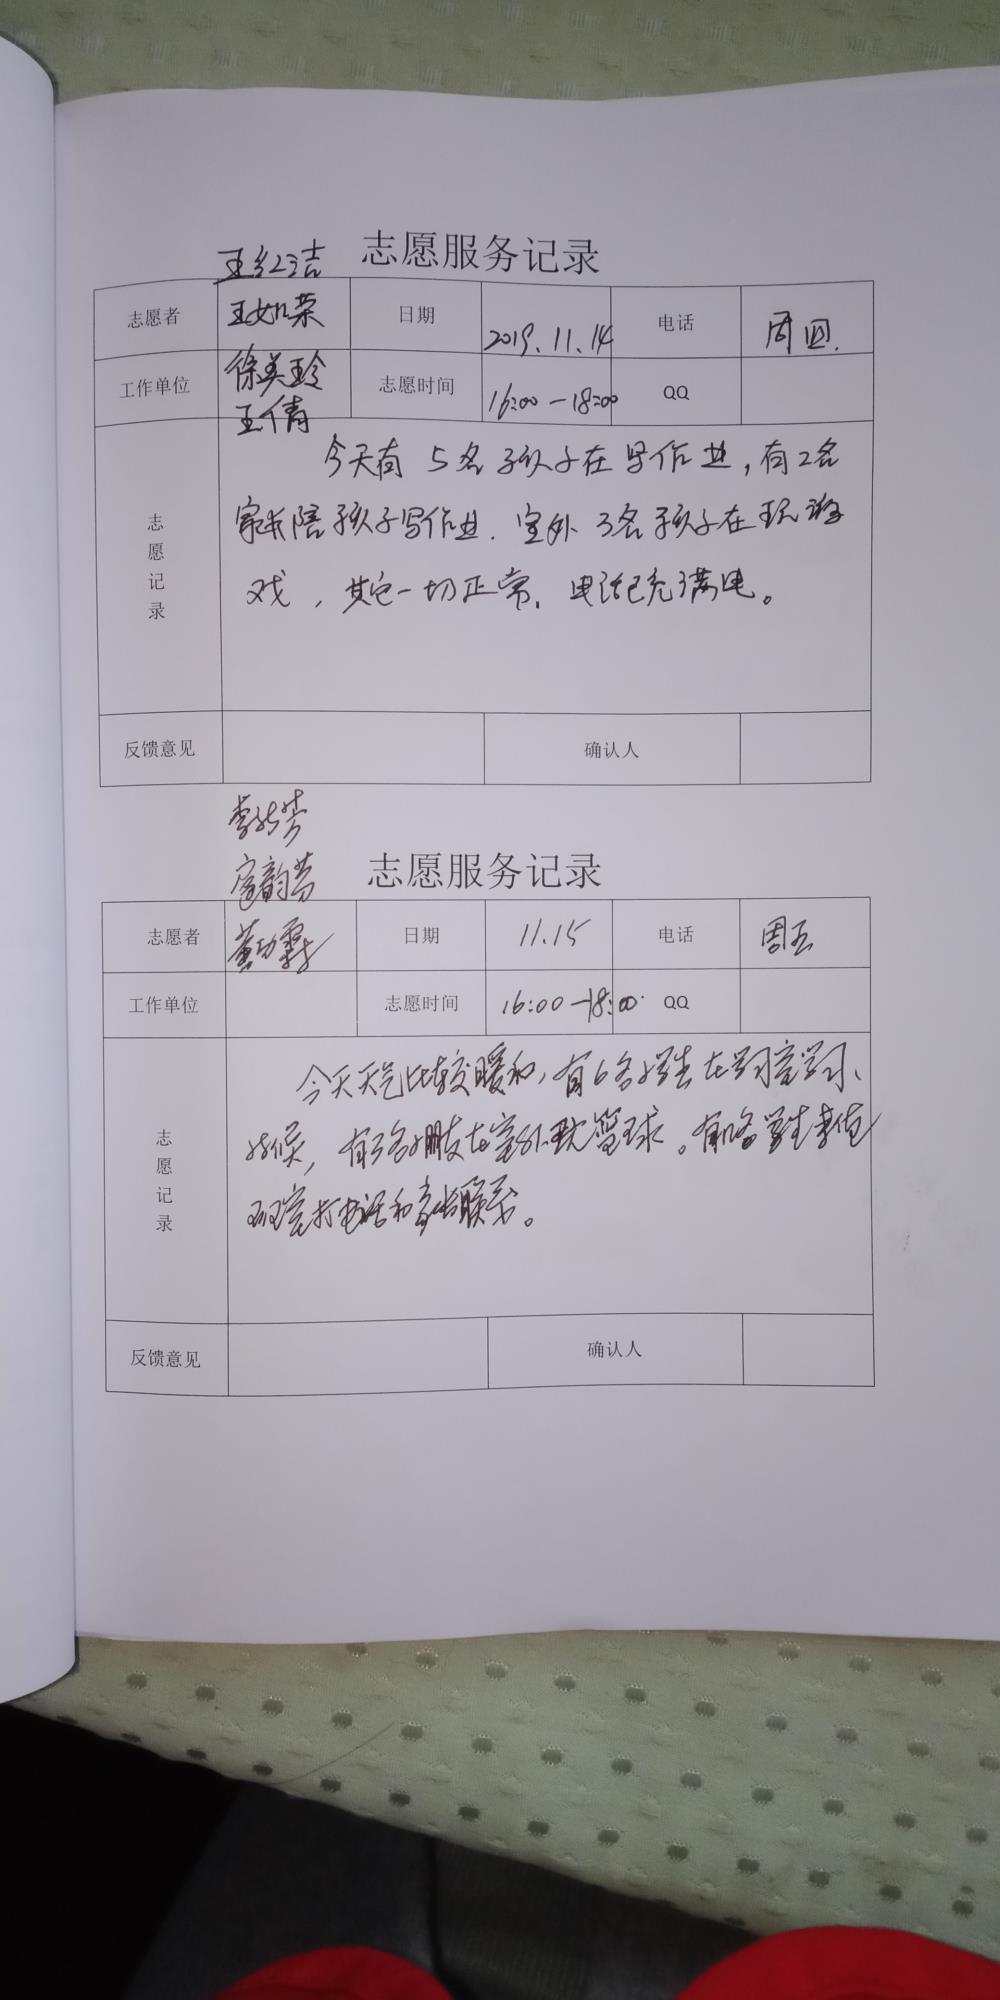 王红洁
志愿服务记录
志愿者 王如荣 日期 2019.11.14 电话 周四.
工作单位 徐美玲 志愿时间 16:00—18:00 QQ
王倩
志愿记录
今天有5名孩子在写作业,有2名
家长陪孩子写作业.室外3名孩子在玩游
戏,其它一切正常.电话已充满电。
反馈意见 确认人
芳
志愿服务记录
志愿者 日期 11.15 电话 周五
工作单位 志愿时间 16:00—18:00 QQ
志愿记录
今天天气比较暖和,有6名学生在学习室学习、
有3名小朋友在室外玩篮球。有 名学生来值
班室打电话和家长联系。
反馈意见 确认人